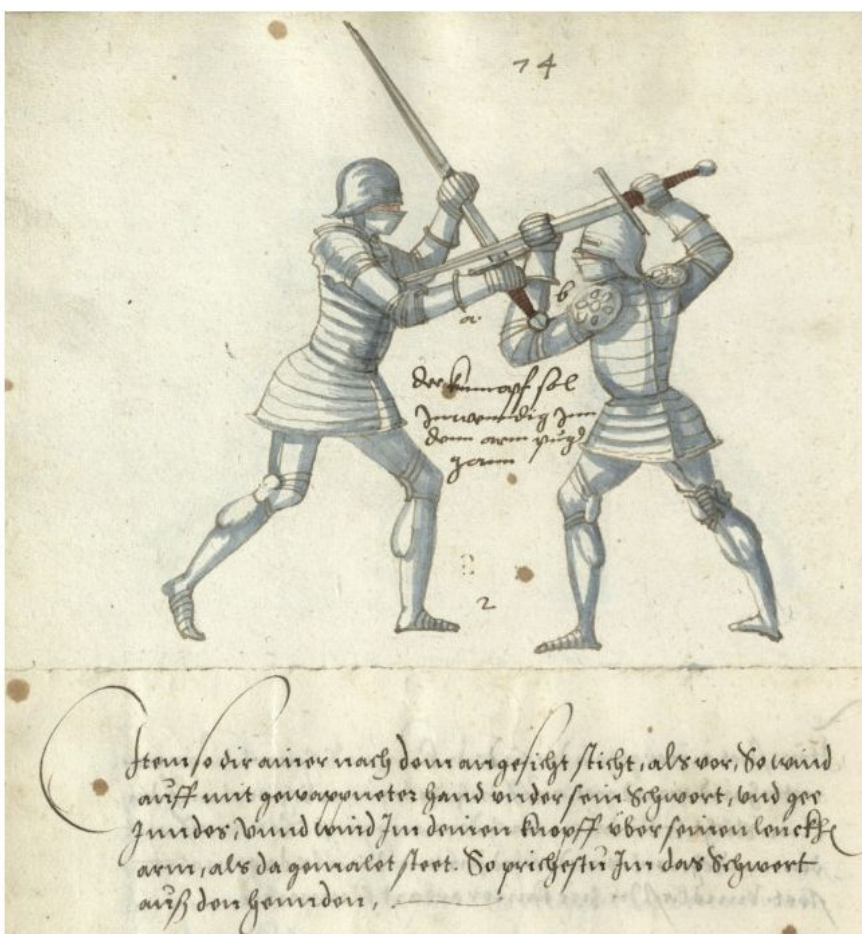 74
a.
b
der knnopf sol
Inwendig Inn
dem arm pug
genn
2
Item so dir ainer nach dem angesicht sticht, als vor, So wind
auff mit gewappneter hand vnder sein Schwert, vnd gee
Inndes, vnnd wind Im deinen knopff vber seinen lenckh
arm, als da gemalet steet. So prichestu Im das Schwert
auß den hennden,